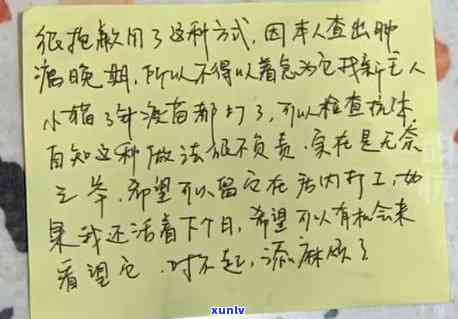 很抱歉用了这种方式，因本人查出肿
瘤晚期，所以不得以着急为它找新主人
小猫3针疫苗都打了，可以检查抗体
自知这种做法很不负责，实在是无奈
之举，希望可以留它在店内打工，如
果我还活着下个月，希望可以有机会来
看望它．对不起，添麻烦了
xunlv